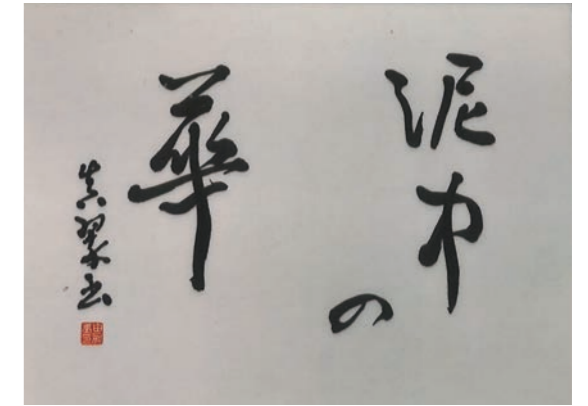 泥中の
華
真翠書